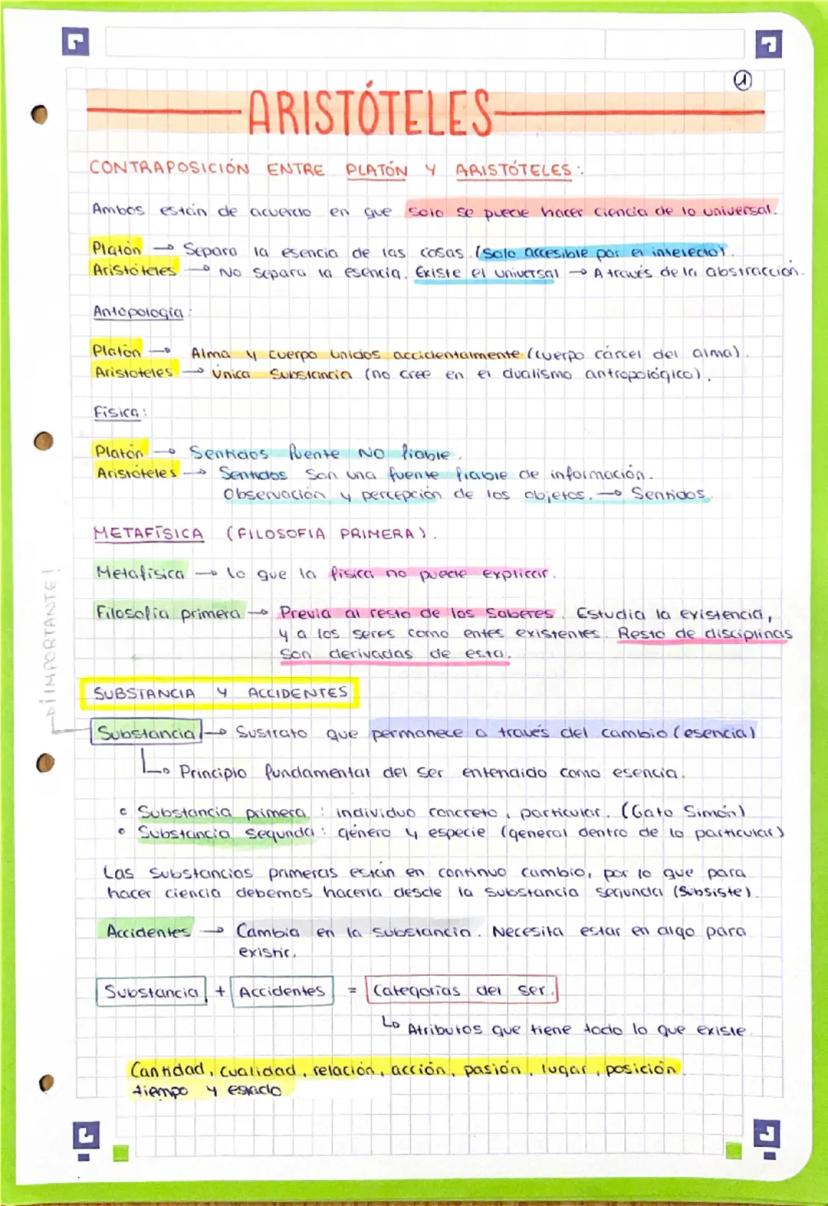 ①
ARISTÓTELES
CONTRAPOSICIÓN ENTRE PLATÓN Y ARISTÓTELES:
Ambos están de acuerdo en que solo se puede hacer ciencia de lo universal.
Platón → Separa la esencia de las cosas. (Solo accesible por el intelecto).
Aristóteles → No separa la esencia. Existe el universal → A través de la abstracción.
Antopología:
Platón → Alma y cuerpo unidos accidentalmente (cuerpo cárcel del alma).
Aristóteles → Única Substancia (no cree en el dualismo antropológico).
Física:
Platón → Sentidos fuente NO fiable.
Aristóteles → Sentidos son una fuente fiable de información.
Observación y percepción de los objetos. → Sentidos.
METAFÍSICA (FILOSOFIA PRIMERA).
Metafísica → lo que la física no puede explicar.
Filosofía primera → Previa al resto de los Saberes. Estudia la existencia,
y a los seres como entes existentes. Resto de disciplinas
son derivadas de esta.
¡IMPORTANTE!
SUBSTANCIA Y ACCIDENTES
Substancia → Sustrato que permanece a través del cambio (esencia)
↳ Principio fundamental del ser entendido como esencia.
• Substancia primera: individuo concreto, particular. (Gato Simón)
• Substancia segunda: género y especie (general dentro de lo particular)
Las substancias primeras están en continuo cambio, por lo que para
hacer ciencia debemos hacerla desde la substancia segunda (Subsiste).
Accidentes → Cambia en la substancia. Necesita estar en algo para
existir.
Substancia + Accidentes = Categorías del ser.
↳ Atributos que tiene todo lo que existe
Cantidad, cualidad, relación, acción, pasión, lugar, posición
tiempo y estado